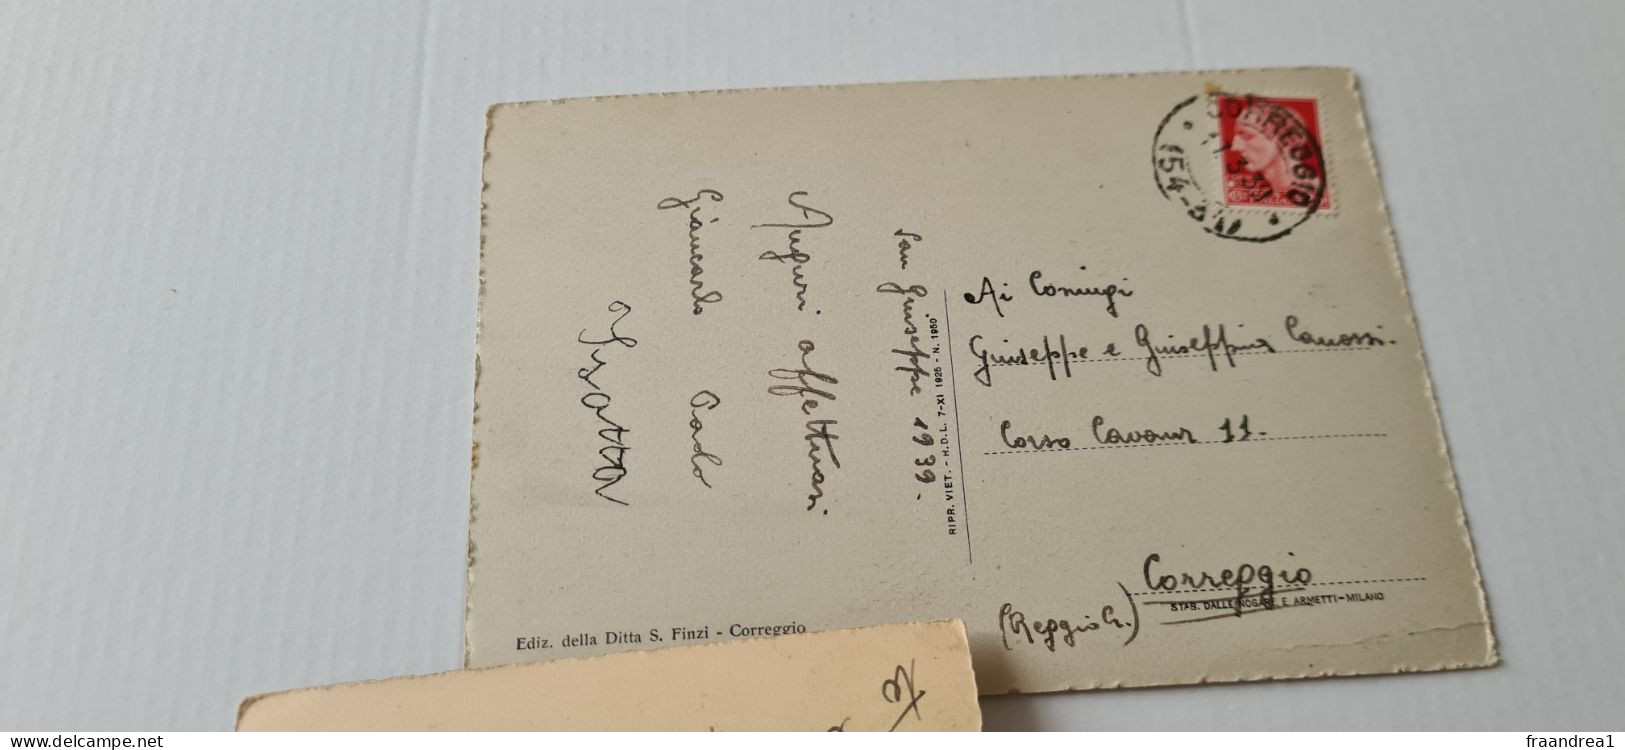 San Giuseppe 1939.
Auguri affettuosi
Giancarlo Paolo
Isotta
RIPR. VIET. - H.D.L. 7-XI 1925 - N. 1950
CORREGGIO
Ai Coniugi
Giuseppe e Giuseppina Canossi.
Corso Cavour 11.
Correggio
(Reggio E.)
STAB. DALLE NOGARE E ARMETTI-MILANO
Ediz. della Ditta S. Finzi - Correggio
www.delcampe.net
fraandrea1